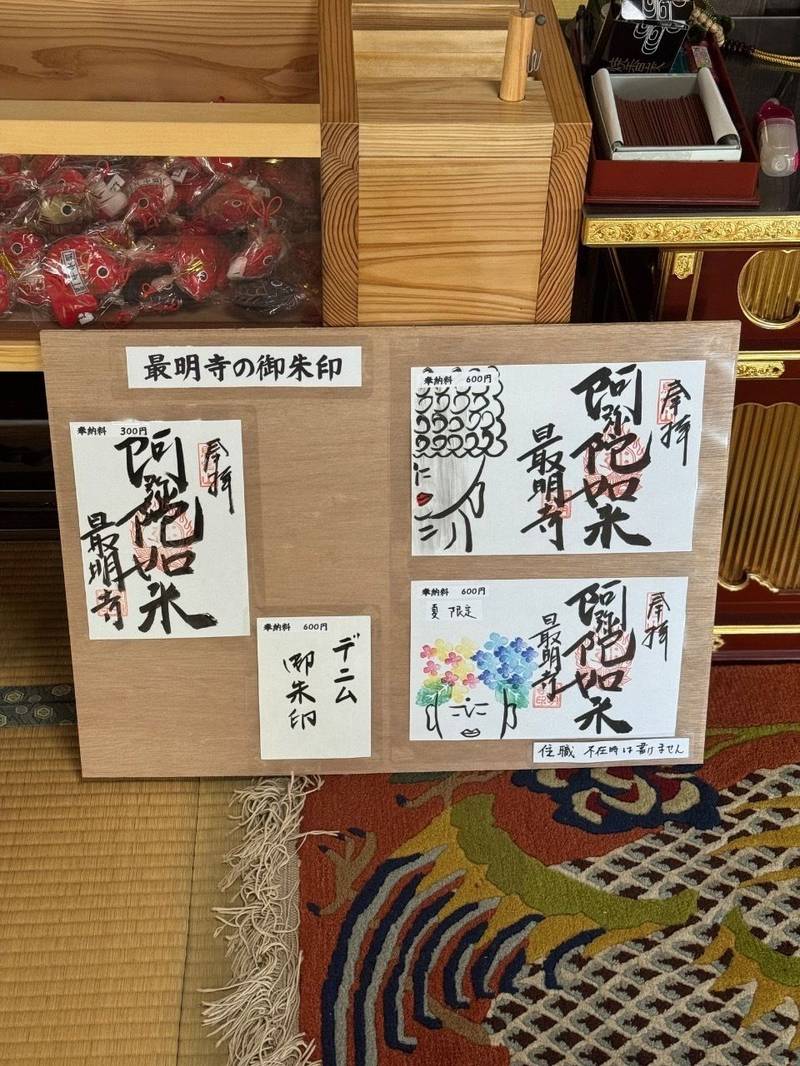 最明寺の御朱印
奉納料 300円
奉拝
阿弥陀如来
最明寺
奉納料 600円
デニム
御朱印
奉納料 600円
奉拝
阿弥陀如来
最明寺
奉納料 600円
夏 限定
奉拝
阿弥陀如来
最明寺
住職 不在時は書けません